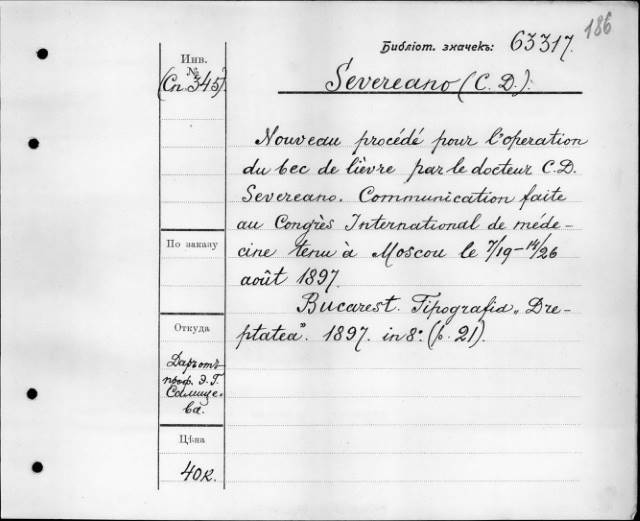 186
Библіот. значекъ: 63317.
Инв.
№
(Сп. 345).
Severeano (C. D.).
Nouveau procédé pour l'operation
du bec de lièvre par le docteur C.D.
Severeano. Communication faite
au Congrès International de méde-
cine tenu à Moscou le 7/19–14/26
août 1897.
Bucarest. Tipografia „Dre-
ptatea". 1897. in 8º. (p. 21).
По заказу
Откуда
Даръ отъ
проф. Э. Г.
Салище-
ва.
Цѣна
40к.